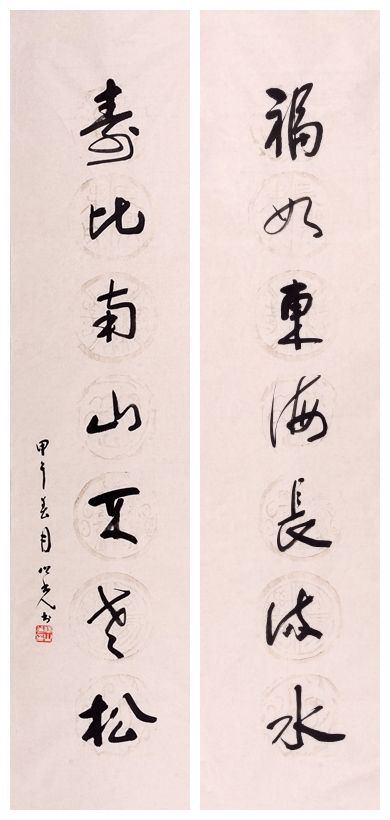 福如東海長流水
壽比南山不老松
甲午春月